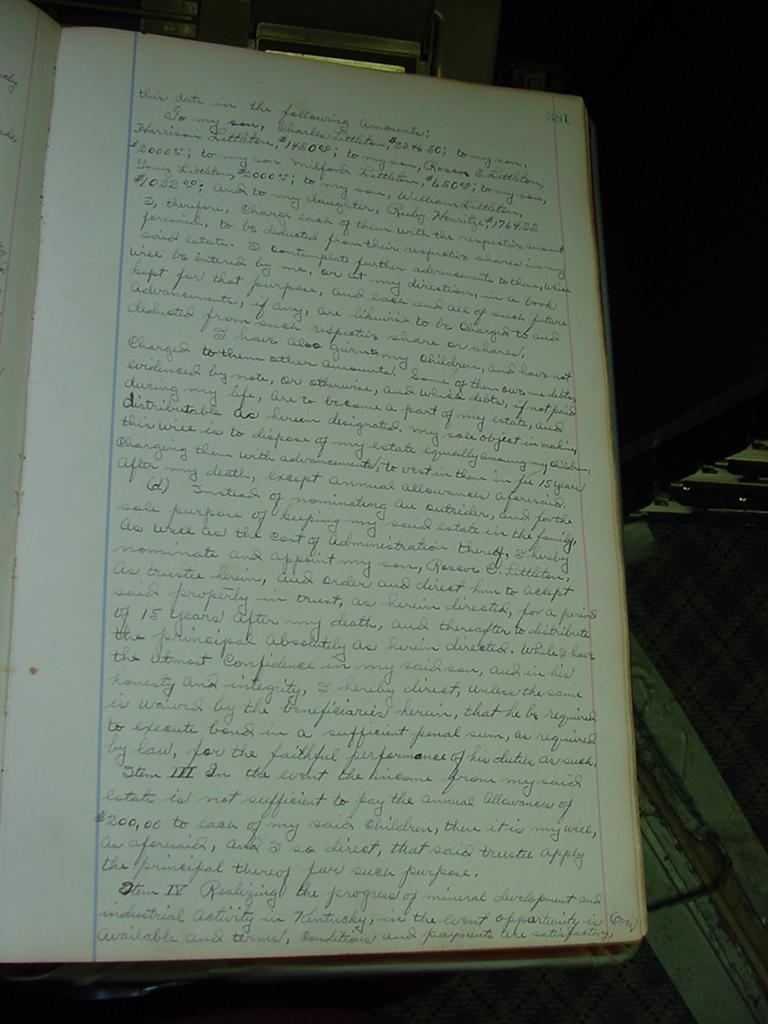 381
this date in the following amounts:
To my son, Charles Littleton, $2246.80; to my son,
Harrison Littleton, $1480.00; to my son, Roscoe C. Littleton,
$2000.00; to my son Milford Littleton, $650.00; to my son,
Littleton, $2000.00; to my son, William Littleton,
$1022.00; and to my daughter, Ruby $1764.22
I, therefore, charge each of them with the respective amount
foresaid, to be deducted from their respective shares in my
said estate. I contemplate further advancements to them, which
will be entered by me, or at my direction, in a book
kept for that purpose, and each and all of such future
advancements, if any, are likewise to be charged to and
deducted from such respective share or shares.
I have also given my children, and have not
charged to them other amounts. Some of them owe me debts,
evidenced by note, or otherwise, and which debts, if not paid
during my life, are to become a part of my estate, and
distributable as herein designated. my sole object in making
this will is to dispose of my estate equally among my children,
charging them with advancements, to vest in them in fee 15 years
after my death, except annual allowances aforesaid.
(d) Instead of nominating an outsider, and for the
sole purpose of keeping my said estate in the family,
as well as the cost of administration thereof, I hereby
nominate and appoint my son, Roscoe C. Littleton,
as trustee herein, and order and direct him to accept
said property in trust, as herein directed, for a period
of 15 years after my death, and thereafter to distribute
the principal absolutely as herein directed. While I have
the utmost confidence in my said son, and in his
honesty and integrity, I hereby direct, unless the same
is waived by the beneficiaries herein, that he be required
to execute bond in a sufficient penal sum, as required
by law, for the faithful performance of his duties as such.
Item III In the event the income from my said
estate is not sufficient to pay the annual allowances of
$200.00 to each of my said children, then it is my will,
as aforesaid, and I so direct, that said trustee apply
the principal thereof for such purpose.
Item IV Realizing the progress of mineral development and
industrial activity in Kentucky, in the event opportunity is
available and terms, conditions and payments are satisfactory,